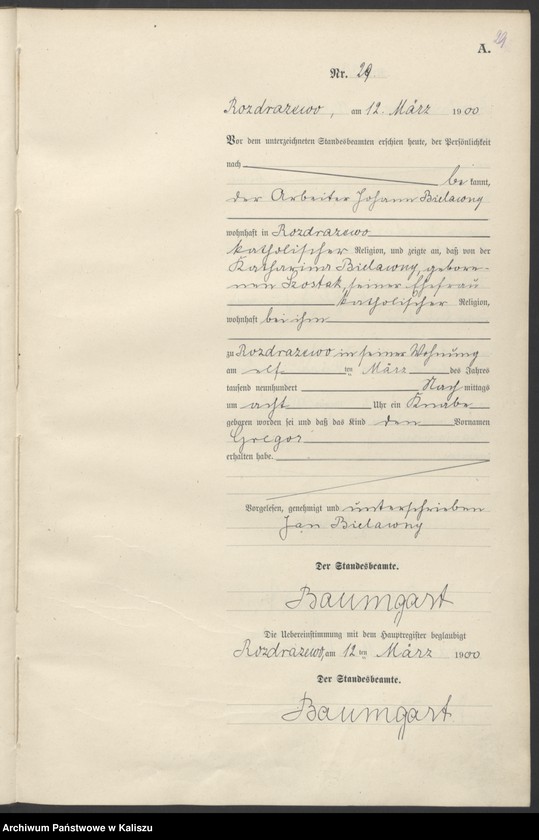 29
A.
Nr. 29.
Rozdrazewo, am 12. März 1900
Vor dem unterzeichneten Standesbeamten erschien heute, der Persönlichkeit
nach
be kannt,
der Arbeiter Johann Bielawny
wohnhaft in Rozdrazewo
katholischer Religion, und zeigte an, daß von der
Katharina Bielawny, gebore-
nen Szostak, seiner Ehefrau
katholischer Religion,
wohnhaft bei ihm
zu Rozdrazewo in seiner Wohnung
am elf ten März des Jahres
tausend neunhundert Nach mittags
um acht Uhr ein Knabe
geboren worden sei und daß das Kind den Vornamen
Gregor
erhalten habe.
Vorgelesen, genehmigt und unterschrieben
Jan Bielawny
Der Standesbeamte.
Baumgart
Die Uebereinstimmung mit dem Hauptregister beglaubigt
Rozdrazewo, am 12 ten März 1900
Der Standesbeamte.
Baumgart
Archiwum Państwowe w Kaliszu